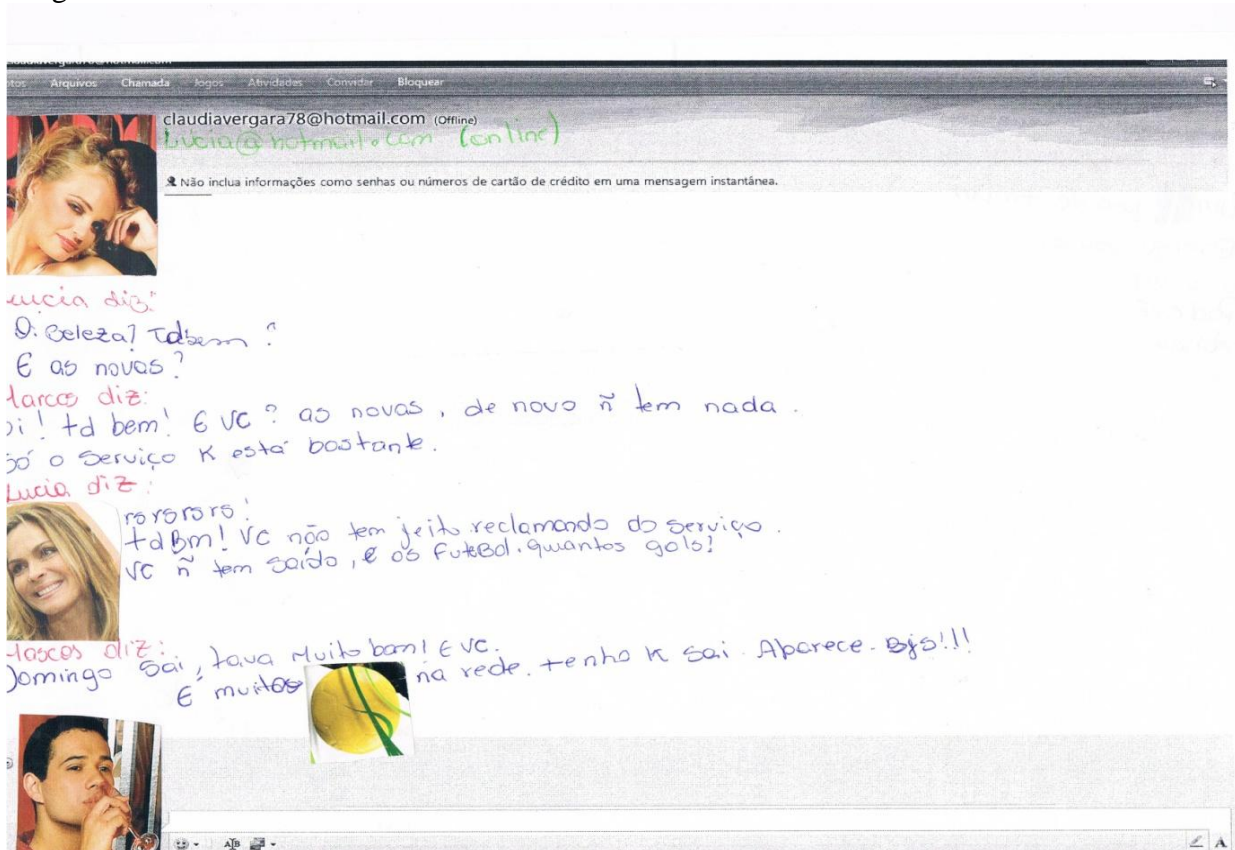 Arquivos Chamada Jogos Atividades Convidar Bloquear
claudiavergara78@hotmail.com (Offline)
Lucia@hotmail.com (online)
Não inclua informações como senhas ou números de cartão de crédito em uma mensagem instantânea.
Lucia diz:
Oi Beleza? Tdbem?
E as novas?
Marcos diz:
oi! td bem! E VC? as novas, de novo ñ tem nada.
só o serviço K está bastante.
Lucia diz:
rsrsrsrs!
tdBm! VC não tem jeito reclamando do serviço.
VC ñ tem saído, e os FuteBol. quantos gols?
Marcos diz:
Domingo sai, tava Muito bom! E VC.
E muitos na rede. tenho K sai. Aparece. Bjs!!!